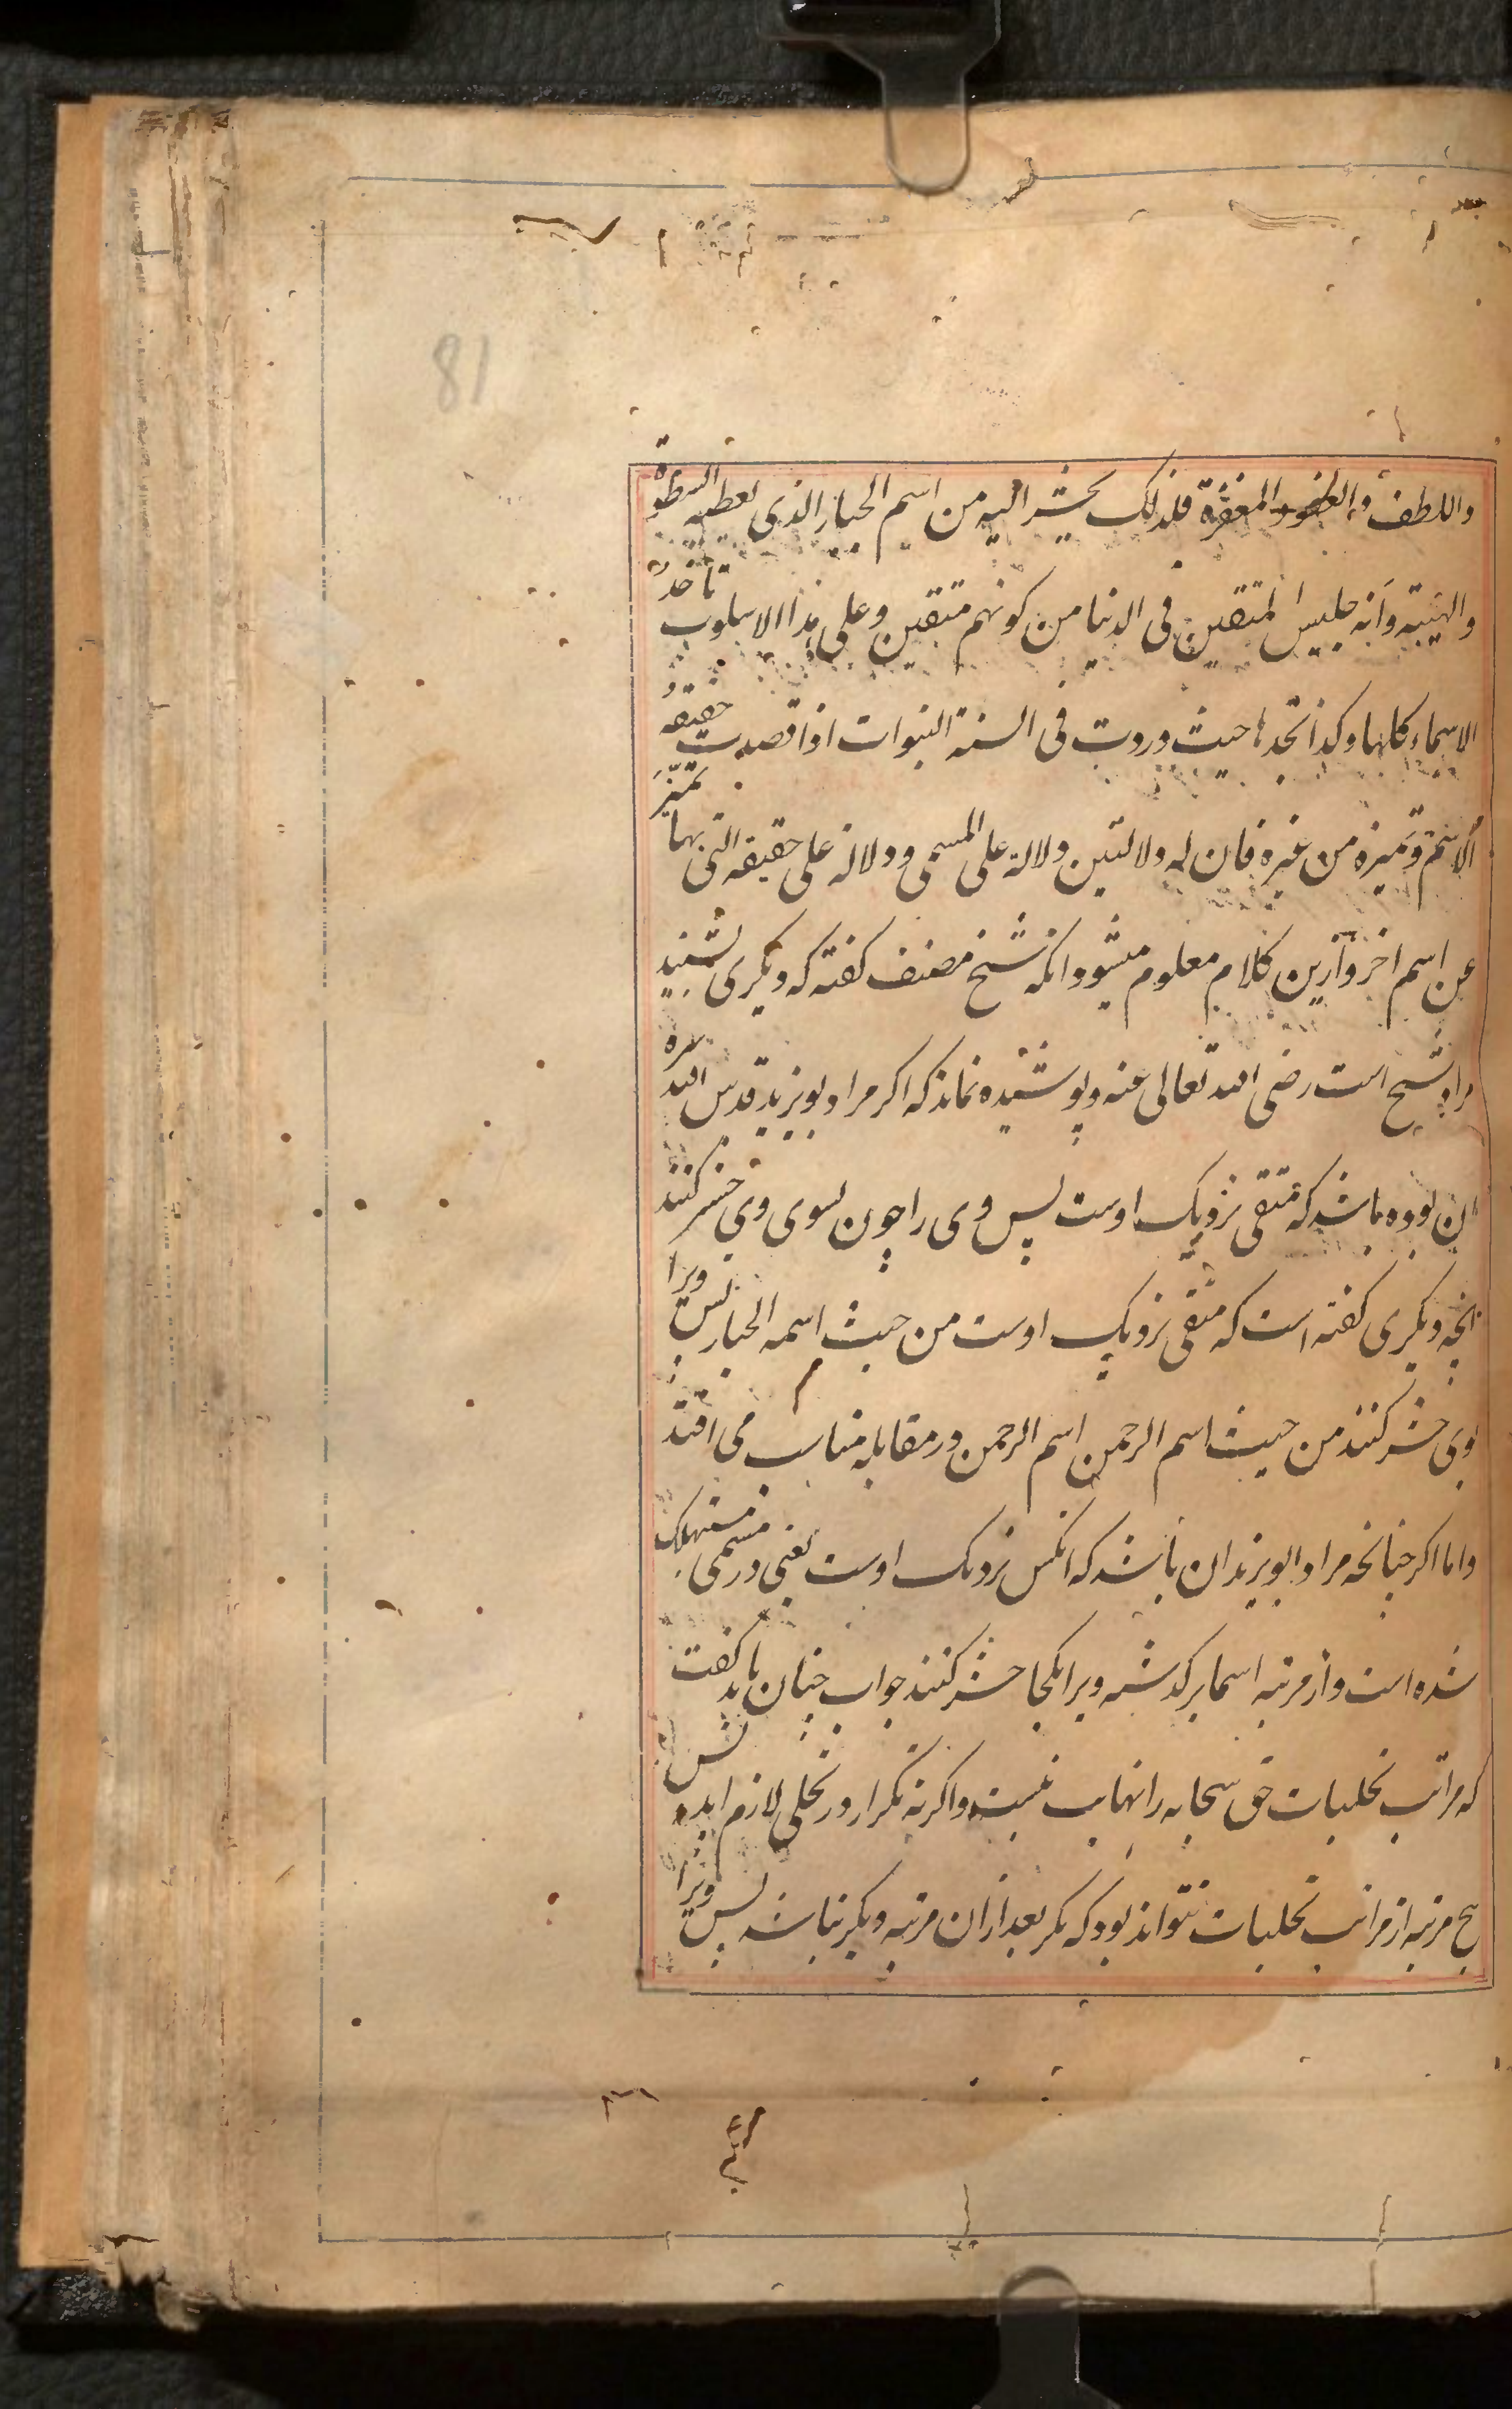 81
واللطف والعفو والمغفرة فلذلک یحشر الیه من اسم الجبار الذی یعطیه السطوة
والهیبته وانه جلیس المتقین فی الدنیا من کونهم متقین وعلی هذا الاسلوب تاخذ
الاسماء کلها وکذا تجدها حیث وردت فی السنة النبوات اذا قصدت حقیقه
الاسم وتمیزه من غیره فان له دلالتین دلالة علی المسمی ودلالة علی حقیقه التی بها تمیز
عن اسم اخر وازین کلام معلوم میشود انکه شیخ مصنف کفته که دیکری بشنید
مراد شیخ است رضی الله تعالی عنه وپوشیده نماند که اکر مراد بویزید قدس الله سره
ان بوده باشد که متقی نزدیک اوست پس وی را چون بسوی وی حشر کنند
انچه دیکری کفته است که متقی نزدیک اوست من حیث اسمه الجبار پس ویرا
بوی حشر کنند من حیث اسم الرحمن اسم الرحمن در مقابله مناسب می افتد
واما اکر چنانچه مراد ابویزید ان باشد که انکس نزدیک اوست یعنی در مسمی مستهلک
شده است واز مرتبه اسما برکدشته ویرا بکجا حشر کنند جواب چنان باید کفت
که مراتب تجلیات حق سبحانه را نهایت نیست واکر نه تکرار در تجلی لازم اید پس
هیچ مرتبه از مراتب تجلیات نتواند بود که مکر بعد ازان مرتبه دیکر نباشد پس ویرا